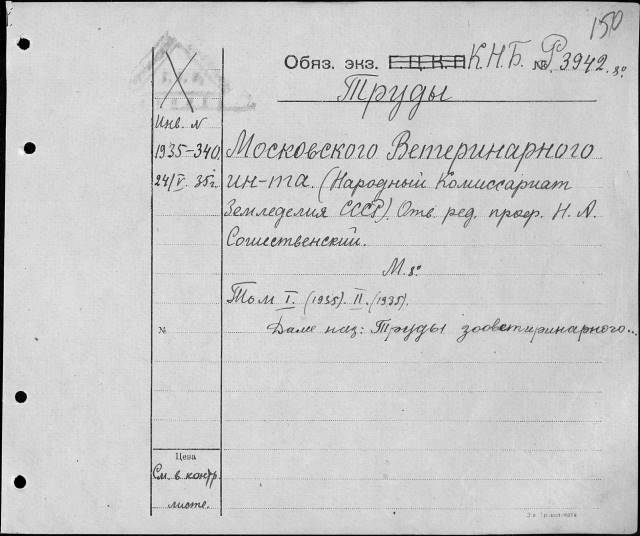 150
Обяз. экз. Г.Ц.К.П К.Н.Б. № Р 3942. 8°
Труды
Инв. №
1935-340 Московского Ветеринарного
24/V 35г. ин-та. (Народный Комиссариат
Земледелия СССР). Отв. ред. проф. Н. А.
Сошественский.
М. 8°
Том I. (1935). II. (1935).
№ Далее наз: Труды зооветеринарного...
Цена
См. в контр.
листе.